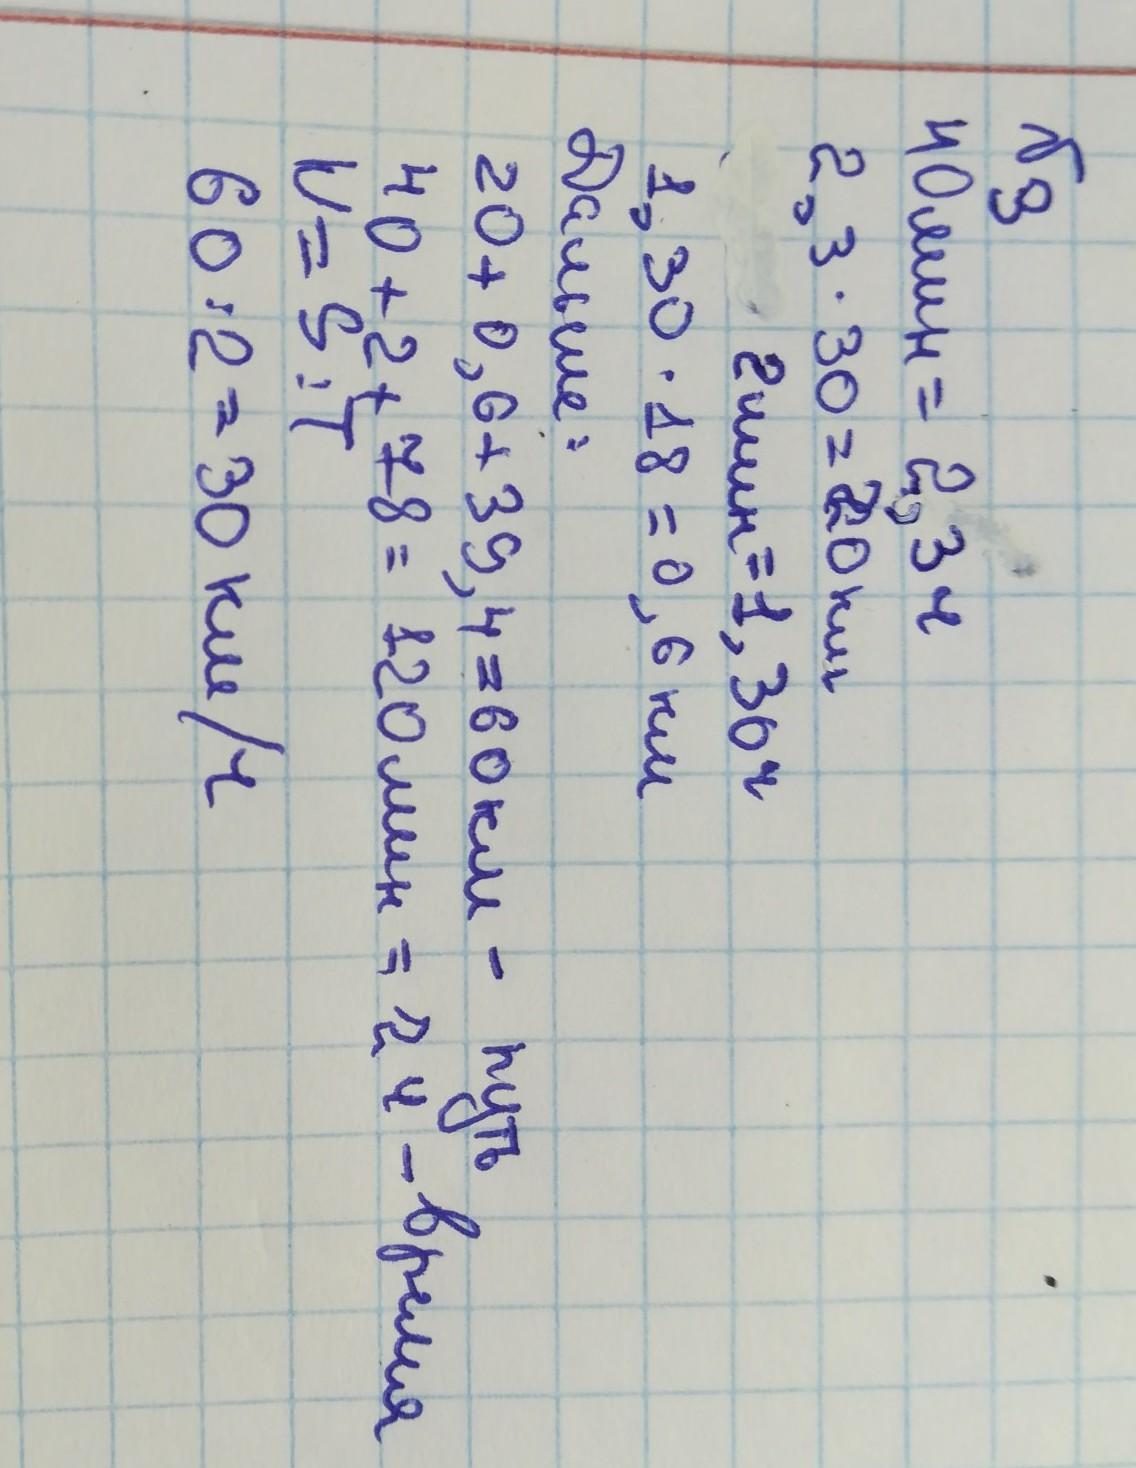 №3
40мин = 2,3ч
2,3 · 30 = 20км
2мин = 1,30ч
1,30 · 18 = 0,6км
Дальше:
20 + 0,6 + 39,4 = 60км - путь
40 + 2 + 78 = 120мин = 2ч - время
V = S : T
60 : 2 = 30км/ч